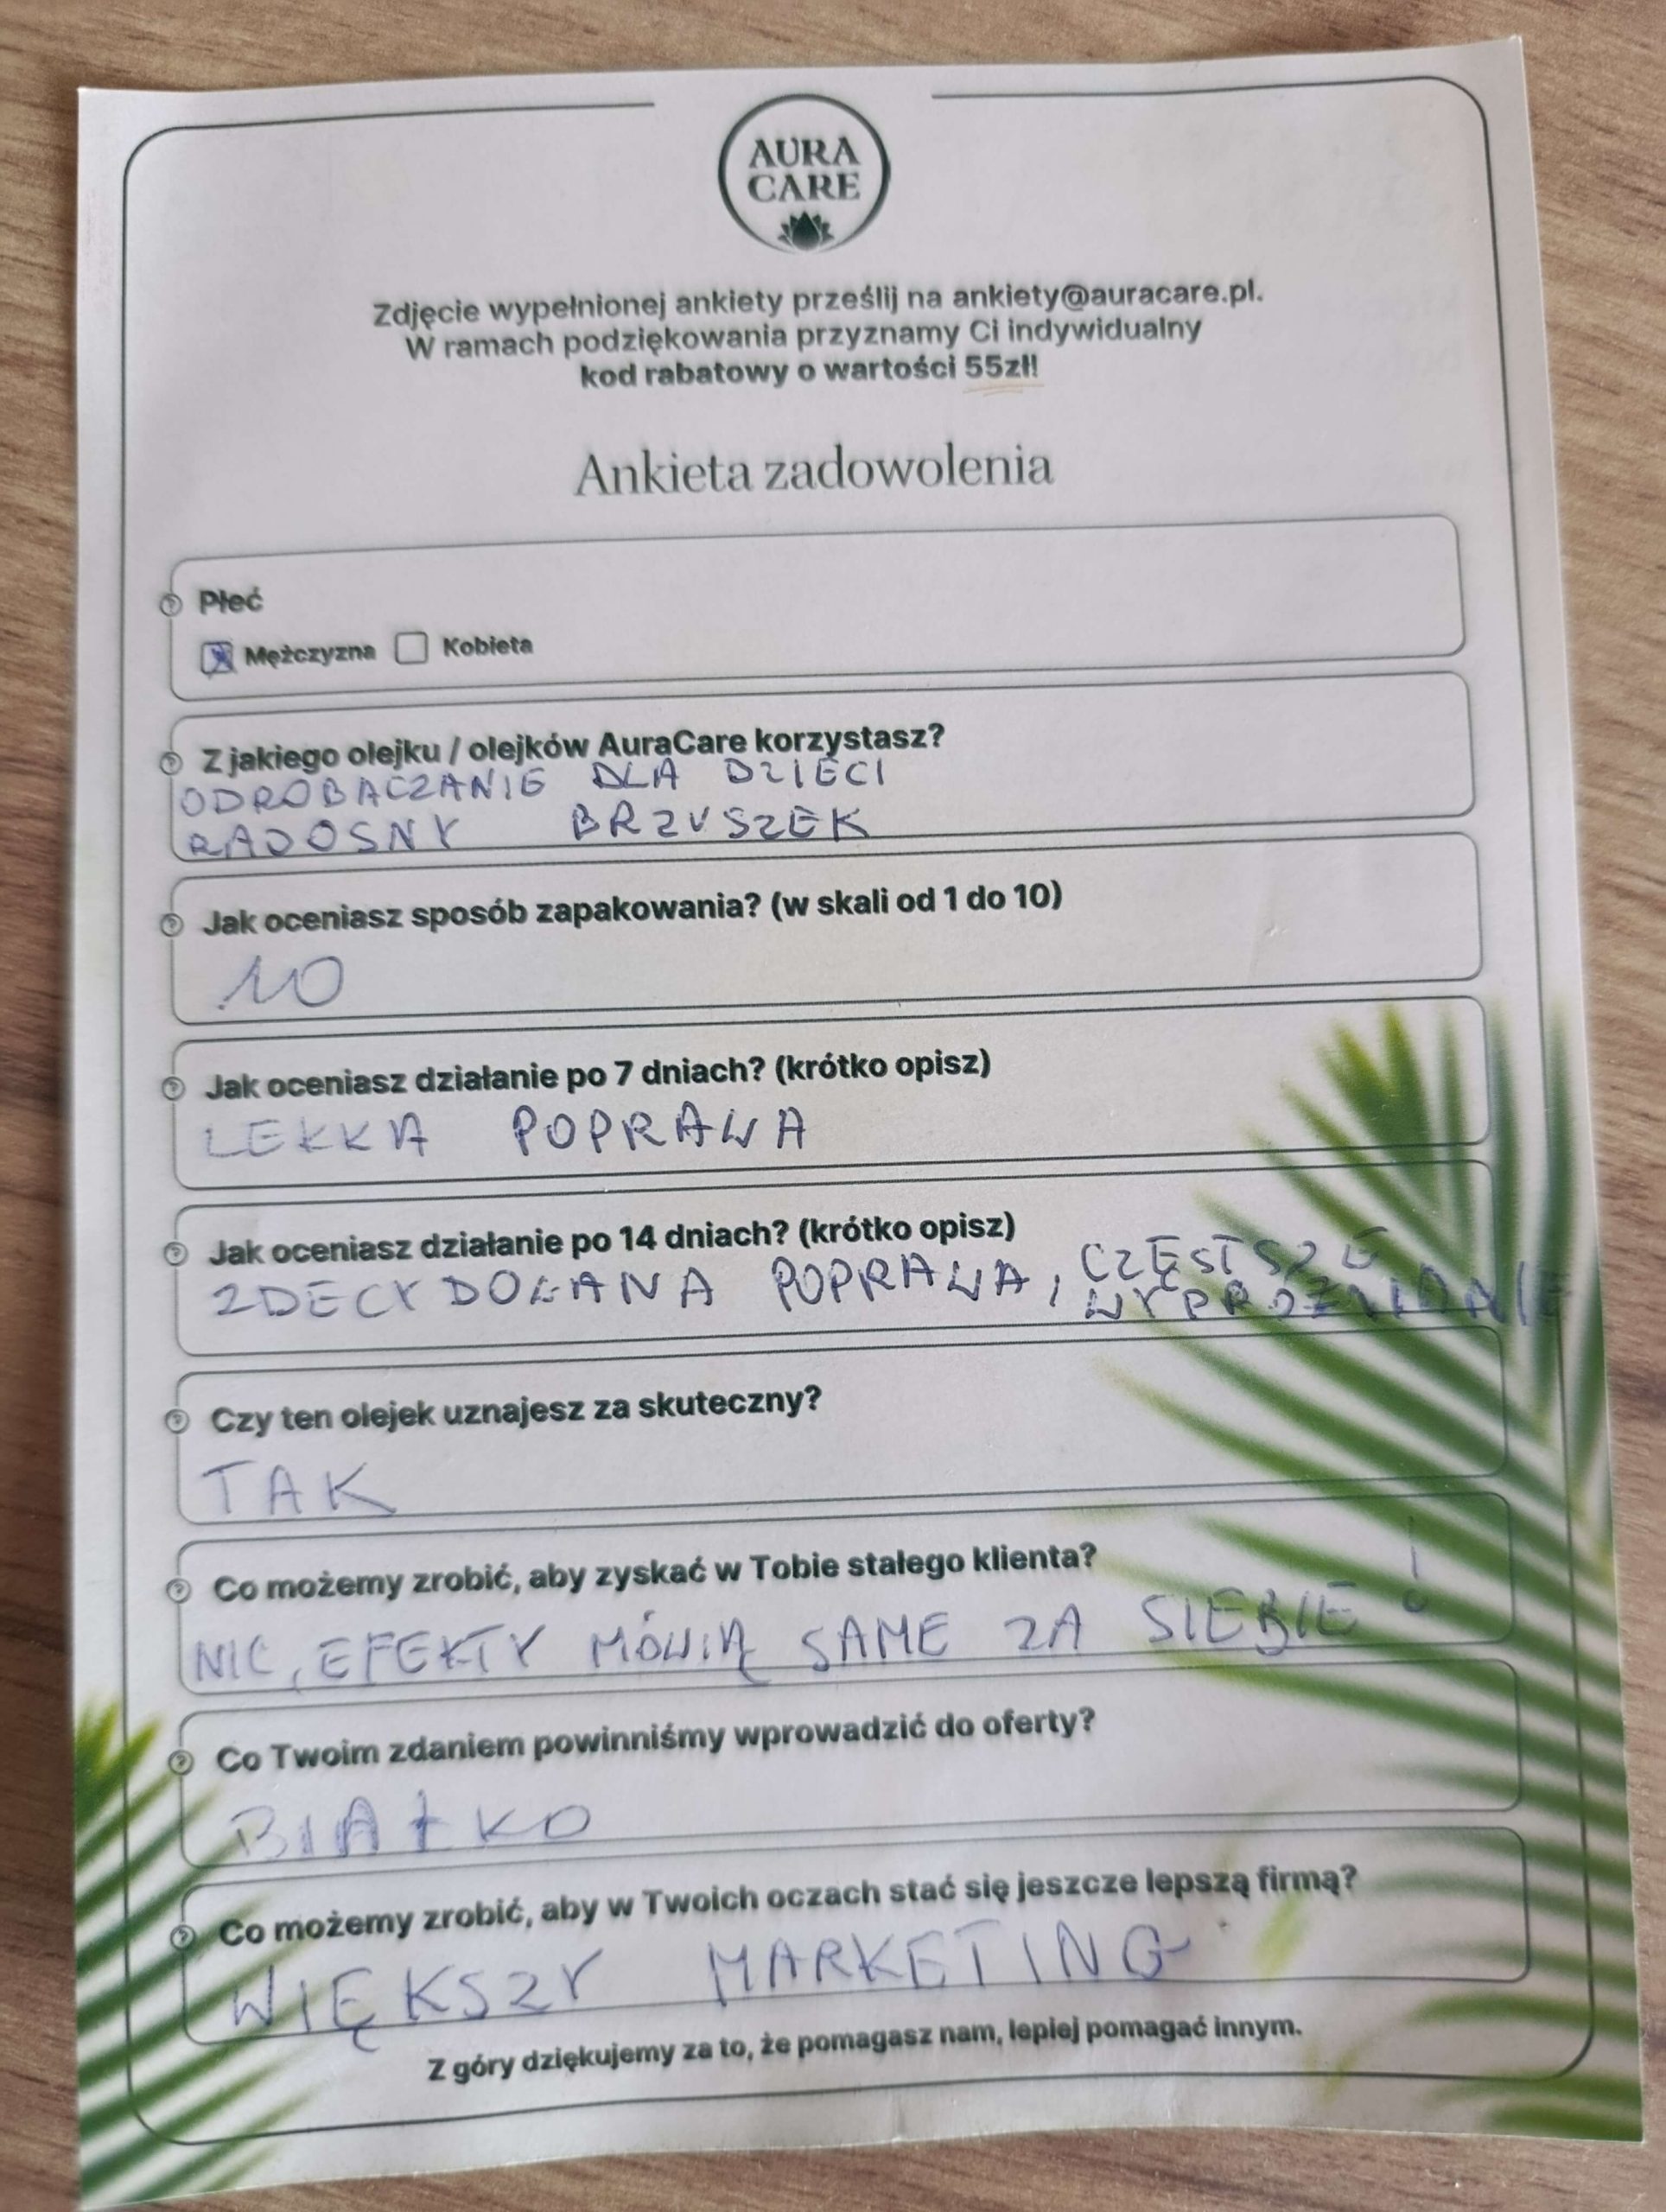 AURA
CARE
Zdjęcie wypełnionej ankiety prześlij na ankiety@auracare.pl.
W ramach podziękowania przyznamy Ci indywidualny
kod rabatowy o wartości 55zł!
Ankieta zadowolenia
Płeć
Mężczyzna Kobieta
Z jakiego olejku / olejków AuraCare korzystasz?
ODROBACZANIE DLA DZIECI
RADOSNY BRZUSZEK
Jak oceniasz sposób zapakowania? (w skali od 1 do 10)
10
Jak oceniasz działanie po 7 dniach? (krótko opisz)
LEKKA POPRAWA
Jak oceniasz działanie po 14 dniach? (krótko opisz)
ZDECYDOWANA POPRAWA, CZĘSTSZE
WYPRÓŻNIANIE
Czy ten olejek uznajesz za skuteczny?
TAK
Co możemy zrobić, aby zyskać w Tobie stałego klienta?
NIC, EFEKTY MÓWIĄ SAME ZA SIEBIE!
Co Twoim zdaniem powinniśmy wprowadzić do oferty?
BIAŁKO
Co możemy zrobić, aby w Twoich oczach stać się jeszcze lepszą firmą?
WIĘKSZY MARKETING
Z góry dziękujemy za to, że pomagasz nam, lepiej pomagać innym.